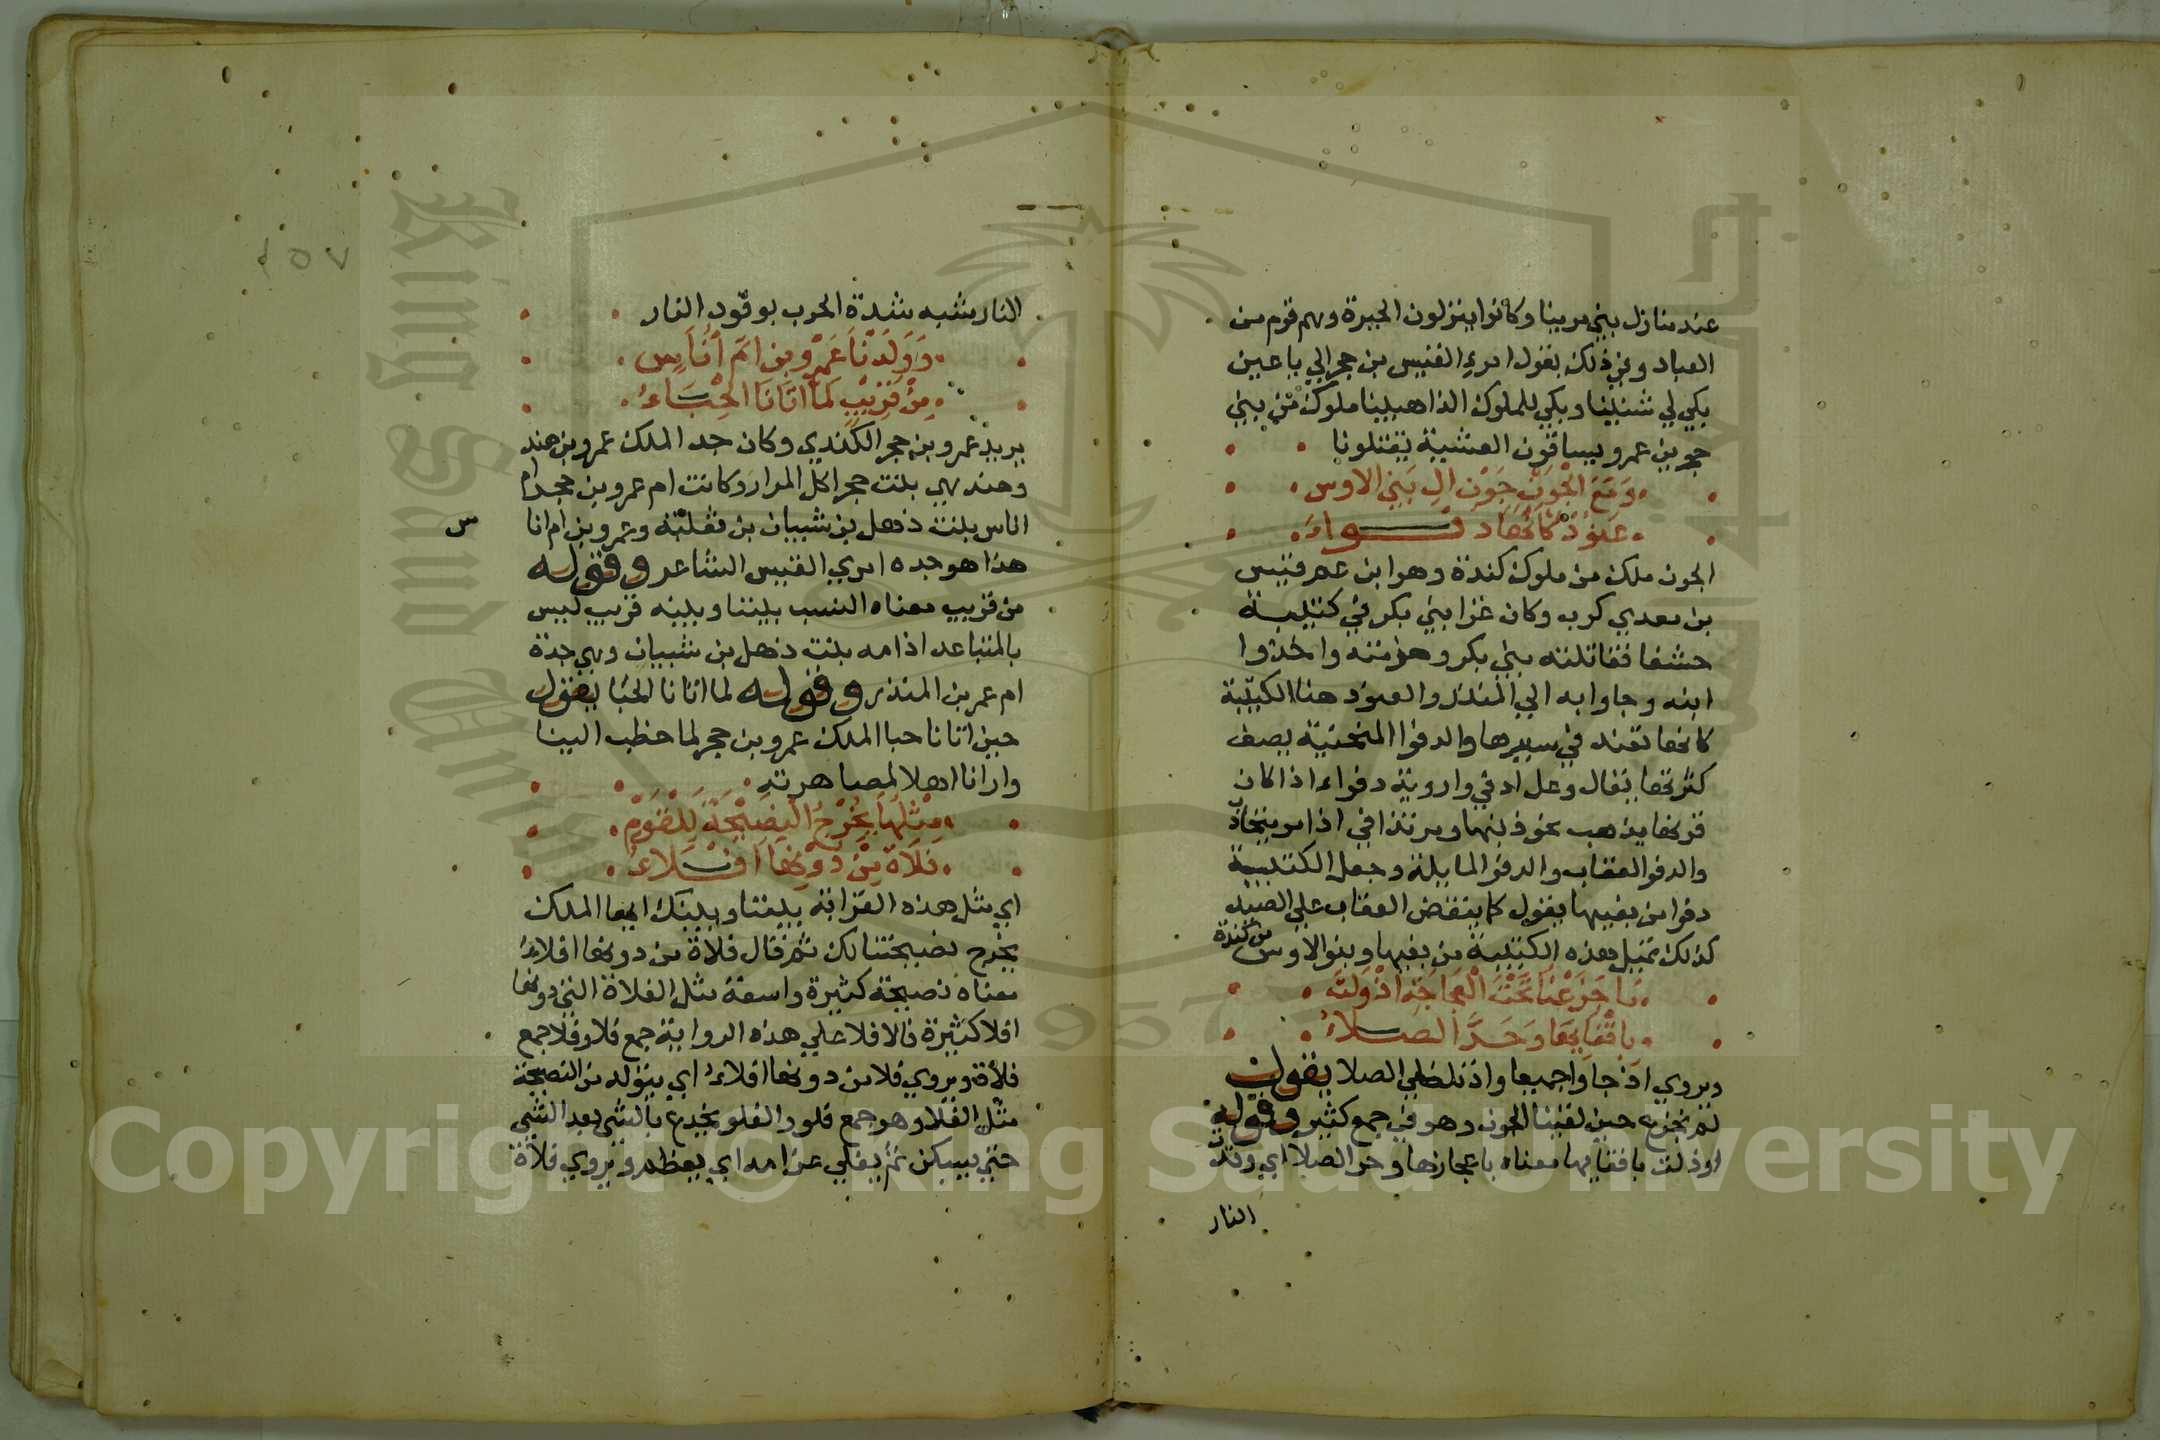 عند منازل بني مرينا وكانوا ينزلون الحيرة وهم قوم من
العباد وفي ذلك يقول امرئ القيس بن حجر الي يا عين
بكي لي شنينا وبكي للملوك الذاهبينا ملوك من بني
حجر بن عمرو يساقون العشية يقتلونا
ومع الجون جون ال بني الاوس
عنود كانها دفواء
الجون ملك من ملوك كندة وهو ابن عم قيس
بن معدي كرب وكان غزا بني بكر في كتيبة
خشنا فقاتلته بني بكر وهزمته واخذوا
ابنه وجاوا به الي المنذر والعنود هنا الكتيبة
كانها تعند في سيرها والدفوا المنحنية يصف
كثرتها يقال وعل ادفي واروية دفواء اذا كان
قرنها يذهب نحو ذنبها
والدفو العقاب والدفو المايلة وجعل الكتيبة
دفوا من بغيها يقول كما ينقض العقاب علي الصيد
كذلك تميل هذه الكتيبة من بغيها وبنو الاوس من كندة
ما جزعنا تحت العجاجة اذ ولت
باقفايها وحر الصلاء
ويروي اذ جاوا جميعا واذ تلظي الصلا يقول
لم نجزع حين لقينا الجون وهو في جمع كثير وقوله
اوذ لت باقفايها معناه باعجازها وحر الصلا اي وقدت
النار
النار شبه شدة الحرب بوقود النار
وولدنا عمرو بن ام اناس
من قريب لما اتانا الحباء
يريد عمرو بن حجر الكندي وكان جد الملك عمرو بن هند
وهند هي بنت حجر اكل المرار وكانت ام عمرو بن حجر ام
اناس بنت ذهل بن شيبان بن ثعلبة وعمرو بن ام انا
س
هذا هو جده امري القيس الشاعر وقوله
من قريب معناه النسب بيننا وبينه قريب ليس
بالمتباعد اذ امه بنت ذهل بن شيبان وهي جدة
ام عمر بن المنذر وقوله لما اتانا الحبا يقول
حين اتانا حبا الملك عمرو بن حجر لما خطب الينا
وارانا اهلا لمصاهرته
مثلها يخرج النصيحة للقوم
فلاة من دونها افلاء
اي مثل هذه القرابة بيننا وبينك ايها الملك
يخرج نصيحتنا لك ثم قال فلاة من دونها افلاء
معناه نصيحة كثيرة واسعة مثل الفلاة التي دونها
افلا كثيرة فالافلا علي هذه الرواية جمع فلا وفلا جمع
فلاة ويروي فلا من دونها افلاء اي يتولد من النصيحة
مثل الفلا وهو جمع فلو والفلو يخدع بالشي بعد الشي
حتي يسكن ثم يفلي عن امه اي يعظم ويروي فلاة